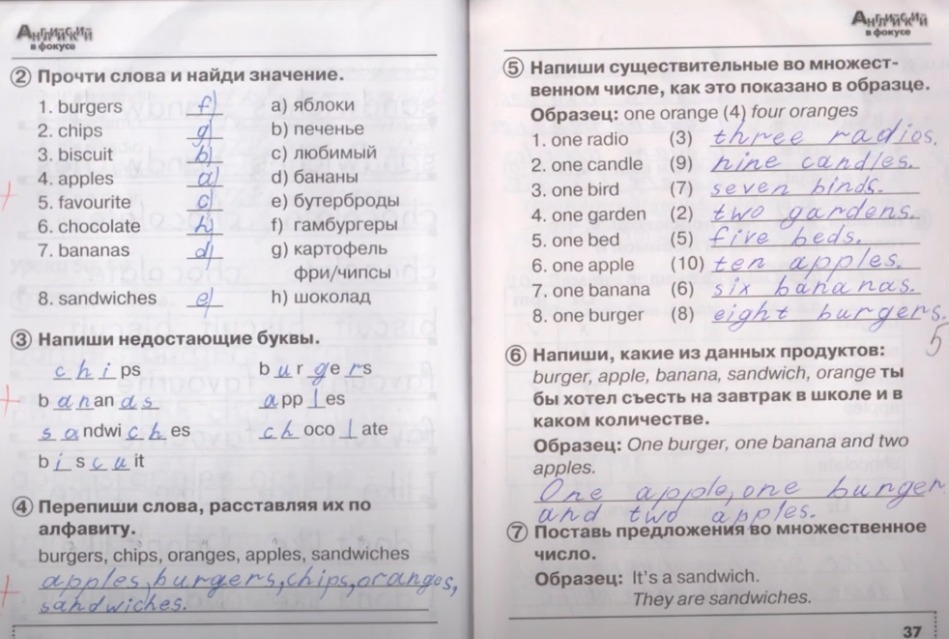 Английский
в фокусе
② Прочти слова и найди значение.
1. burgers f) a) яблоки
2. chips g) b) печенье
3. biscuit b) c) любимый
4. apples a) d) бананы
5. favourite c) e) бутерброды
6. chocolate h) f) гамбургеры
7. bananas d) g) картофель
фри/чипсы
8. sandwiches e) h) шоколад
③ Напиши недостающие буквы.
chips burgers
bananas apples
sandwiches chocolate
biscuit
④ Перепиши слова, расставляя их по
алфавиту.
burgers, chips, oranges, apples, sandwiches
apples, burgers, chips, oranges,
sandwiches.
Английский
в фокусе
⑤ Напиши существительные во множест-
венном числе, как это показано в образце.
Образец: one orange (4) four oranges
1. one radio (3) three radios.
2. one candle (9) nine candles.
3. one bird (7) seven birds.
4. one garden (2) two gardens.
5. one bed (5) five beds.
6. one apple (10) ten apples.
7. one banana (6) six bananas.
8. one burger (8) eight burgers.
5
⑥ Напиши, какие из данных продуктов:
burger, apple, banana, sandwich, orange ты
бы хотел съесть на завтрак в школе и в
каком количестве.
Образец: One burger, one banana and two
apples.
One apple, one burger
and two apples.
⑦ Поставь предложения во множественное
число.
Образец: It's a sandwich.
They are sandwiches.
37